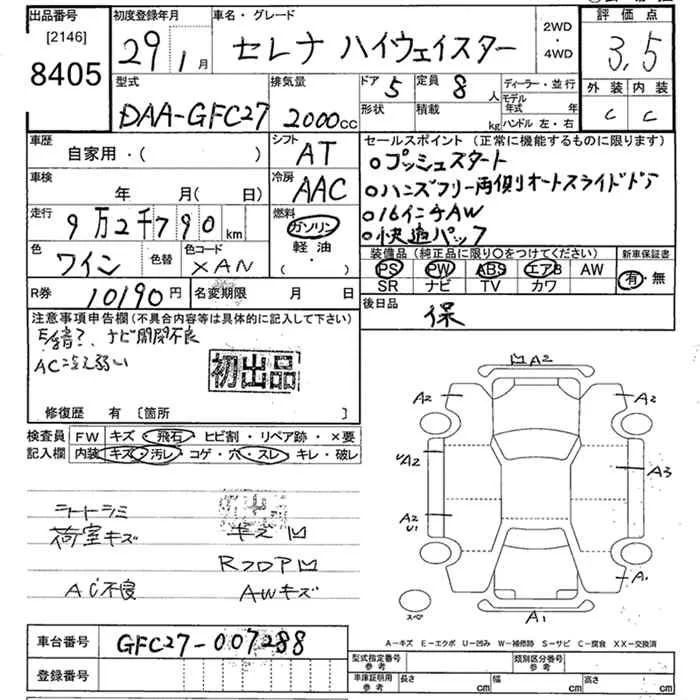 出品番号 初度登録年月 車名・グレード 2WD・4WD 評価点
[2146]
8405 29年1月 セレナ ハイウェイスター 3,5
型式 排気量 ドア 5 定員 8人 ディーラー・並行 外装 内装
DAA-GFC27 2000cc 形状 積載 kg モデル年式 年 ハンドル 左・右 C C
車歴 シフト セールスポイント (正常に機能するものに限ります)
自家用・( ) AT プッシュスタート
車検 冷房 ハンズフリー両側オートスライドドア
年 月(日) AAC 16インチAW
走行 9万2千790km 燃料 ガソリン 快適パック
色 ワイン 色替 色コード XAN 軽油・( )
装備品 (純正品に限り○をつけてください) 新車保証書
PS PW ABS エアB AW 有・無
SR ナビ TV カワ
R券 10190円 名変期限 月 日 後日品
保
注意事項申告欄(不具合内容等は具体的に記入して下さい)
ナビ開閉不良
初出品
修復歴 有 [箇所 ]
検査員記入欄 FW キズ・飛石・ヒビ割・リペア跡・×要
内装 キズ・汚レ・コゲ・穴・スレ・キレ・破レ
シートシミ
荷室キズ
RフロアU
AC不良 AWキズ
A2
A2 A2
UA2
A3
A2
U1
A1
A1
スペア
A-キズ E-エクボ U-凹み W-補修跡 S-サビ C-腐食 XX-交換済
車台番号 GFC27-007288
登録番号
型式指定番号参考 類別区分番号参考
車庫証明用参考 長さ cm 幅 cm 高さ cm